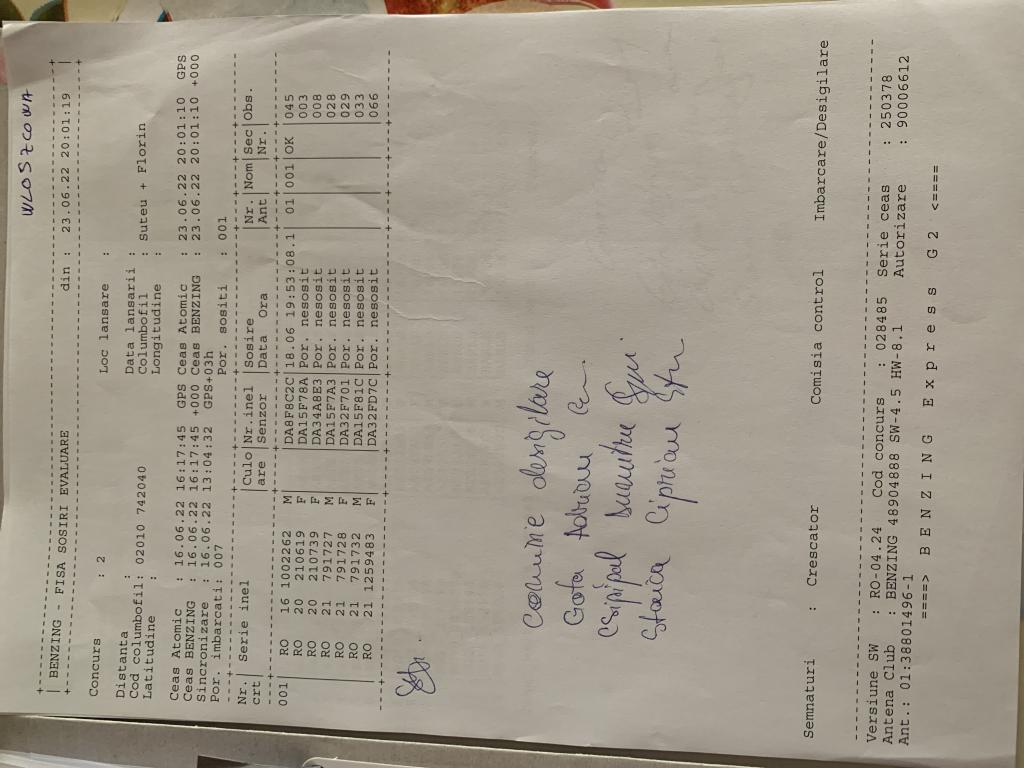 WLOSZCOWA
+-----------------------------------------------------------------+
| BENZING - FISA SOSIRI EVALUARE din : 23.06.22 20:01:19 |
+-----------------------------------------------------------------+
Concurs : 2 Loc lansare :
Distanta : Data lansarii :
Cod columbofil: 02010 742040 Columbofil : Suteu + Florin
Latitudine : Longitudine :
Ceas Atomic : 16.06.22 16:17:45 GPS Ceas Atomic : 23.06.22 20:01:10 GPS
Ceas BENZING : 16.06.22 16:17:45 +000 Ceas BENZING : 23.06.22 20:01:10 +000
Sincronizare : 16.06.22 13:04:32 GPS+03h
Por. imbarcati: 007 Por. sositi : 001
Nr. | Serie inel |Culo|Nr.inel |Sosire |Nr. |Nom|Sec|Obs.
crt | |are |Senzor |Data Ora |Ant | |Nr.|
001 | RO 16 1002262 M | |DA8F8C2C|18.06 19:53:08.1| 01|001|OK |045
| RO 20 210619 F | |DA15F78A|Por. nesosit | | | |003
| RO 20 210739 F | |DA34A8E3|Por. nesosit | | | |008
| RO 21 791727 M | |DA15F7A3|Por. nesosit | | | |028
| RO 21 791728 F | |DA32F701|Por. nesosit | | | |029
| RO 21 791732 M | |DA15F81C|Por. nesosit | | | |033
| RO 21 1259483 F | |DA32FD7C|Por. nesosit | | | |066
comisie desigilare
Gota Adrian
Csipal Dumitru
Stanca Ciprian
Semnaturi : Crescator Comisia control Imbarcare/Desigilare
Versiune SW : RO-04.24 Cod concurs : 028485 Serie ceas : 250378
Antena Club : BENZING 48904888 SW-4.5 HW-8.1 Autorizare : 90006612
Ant.: 01:38801496-1
====> B E N Z I N G E x p r e s s G 2 <====